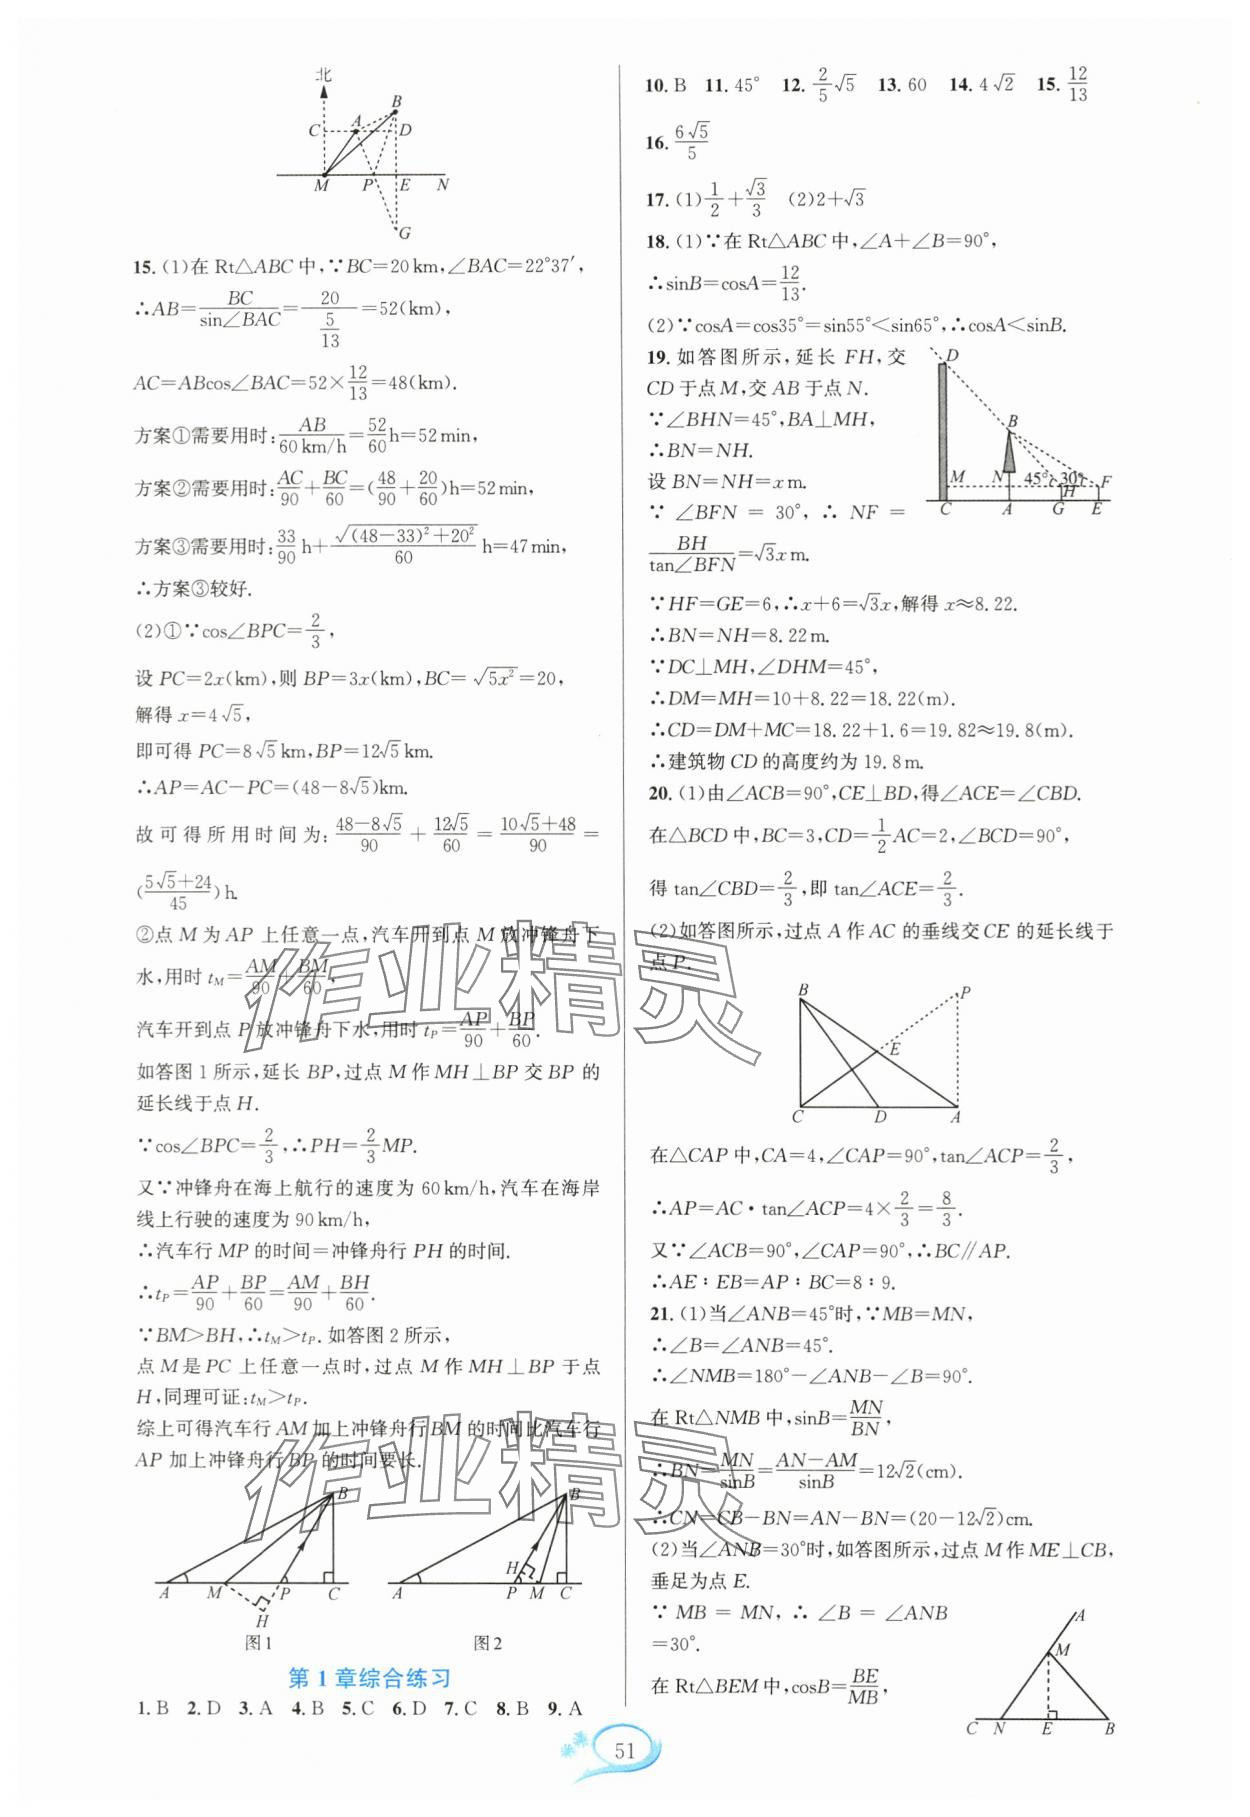 北
B
A
C
D
M
P
E
N
G
15. (1)在 Rt△ABC 中,∵BC=20 km,∠BAC=22°37′,
∴AB=BC/sin∠BAC=20/(5/13)=52(km),
AC=ABcos∠BAC=52×12/13=48(km).
方案①需要用时:AB/60 km/h=52/60 h=52 min,
方案②需要用时:AC/90+BC/60=(48/90+20/60)h=52 min,
方案③需要用时:33/90 h+√((48−33)²+20²)/60 h=47 min,
∴方案③较好.
(2)①∵cos∠BPC=2/3,
设 PC=2x(km),则 BP=3x(km),BC=√(5x²)=20,
解得 x=4√5,
即可得 PC=8√5 km,BP=12√5 km.
∴AP=AC−PC=(48−8√5)km.
故可得所用时间为:(48−8√5)/90+12√5/60=(10√5+48)/90=
((5√5+24)/45)h.
②点 M 为 AP 上任意一点,汽车开到点 M 放冲锋舟下
水,用时 t_M=AM/90+BM/60,
汽车开到点 P 放冲锋舟下水,用时 t_P=AP/90+BP/60.
如答图 1 所示,延长 BP,过点 M 作 MH⊥BP 交 BP 的
延长线于点 H.
∵cos∠BPC=2/3,∴PH=2/3 MP.
又∵冲锋舟在海上航行的速度为 60 km/h,汽车在海岸
线上行驶的速度为 90 km/h,
∴汽车行 MP 的时间=冲锋舟行 PH 的时间.
∴t_P=AP/90+BP/60=AM/90+BH/60.
∵BM>BH,∴t_M>t_P.如答图 2 所示,
点 M 是 PC 上任意一点时,过点 M 作 MH⊥BP 于点
H,同理可证:t_M>t_P.
综上可得汽车行 AM 加上冲锋舟行 BM 的时间比汽车行
AP 加上冲锋舟行 BP 的时间要长.
B
A M P C
H
图 1
B
H
A P M C
图 2
第 1 章综合练习
1. B 2. D 3. A 4. B 5. C 6. D 7. C 8. B 9. A
10. B 11. 45° 12. 2/5 √5 13. 60 14. 4√2 15. 12/13
16. 6√5/5
17. (1)1/2+√3/3 (2)2+√3
18. (1)∵在 Rt△ABC 中,∠A+∠B=90°,
∴sinB=cosA=12/13.
(2)∵cosA=cos35°=sin55°<sin65°,∴cosA<sinB.
19. 如答图所示,延长 FH,交
CD 于点 M,交 AB 于点 N.
∵∠BHN=45°,BA⊥MH,
∴BN=NH.
设 BN=NH=x m.
∵ ∠BFN = 30°, ∴ NF =
BH/tan∠BFN=√3x m.
D
B
M N 45° 30° F
H
C A G E
∵HF=GE=6,∴x+6=√3x,解得 x≈8.22.
∴BN=NH=8.22 m.
∵DC⊥MH,∠DHM=45°,
∴DM=MH=10+8.22=18.22(m).
∴CD=DM+MC=18.22+1.6=19.82≈19.8(m).
∴建筑物 CD 的高度约为 19.8 m.
20. (1)由∠ACB=90°,CE⊥BD,得∠ACE=∠CBD.
在△BCD 中,BC=3,CD=1/2 AC=2,∠BCD=90°,
得 tan∠CBD=2/3,即 tan∠ACE=2/3.
(2)如答图所示,过点 A 作 AC 的垂线交 CE 的延长线于
点 P.
B
P
E
C D A
在△CAP 中,CA=4,∠CAP=90°,tan∠ACP=2/3,
∴AP=AC·tan∠ACP=4×2/3=8/3.
又∵∠ACB=90°,∠CAP=90°,∴BC∥AP.
∴AE∶EB=AP∶BC=8∶9.
21. (1)当∠ANB=45°时,∵MB=MN,
∴∠B=∠ANB=45°.
∴∠NMB=180°−∠ANB−∠B=90°.
在 Rt△NMB 中,sinB=MN/BN,
∴BN=MN/sinB=(AN−AM)/sinB=12√2(cm).
∴CN=CB−BN=AN−BN=(20−12√2)cm.
(2)当∠ANB=30°时,如答图所示,过点 M 作 ME⊥CB,
垂足为点 E.
∵ MB = MN, ∴ ∠B = ∠ANB
=30°.
在 Rt△BEM 中,cosB=BE/MB,
A
M
C N E B
51
作业精灵
作业精灵